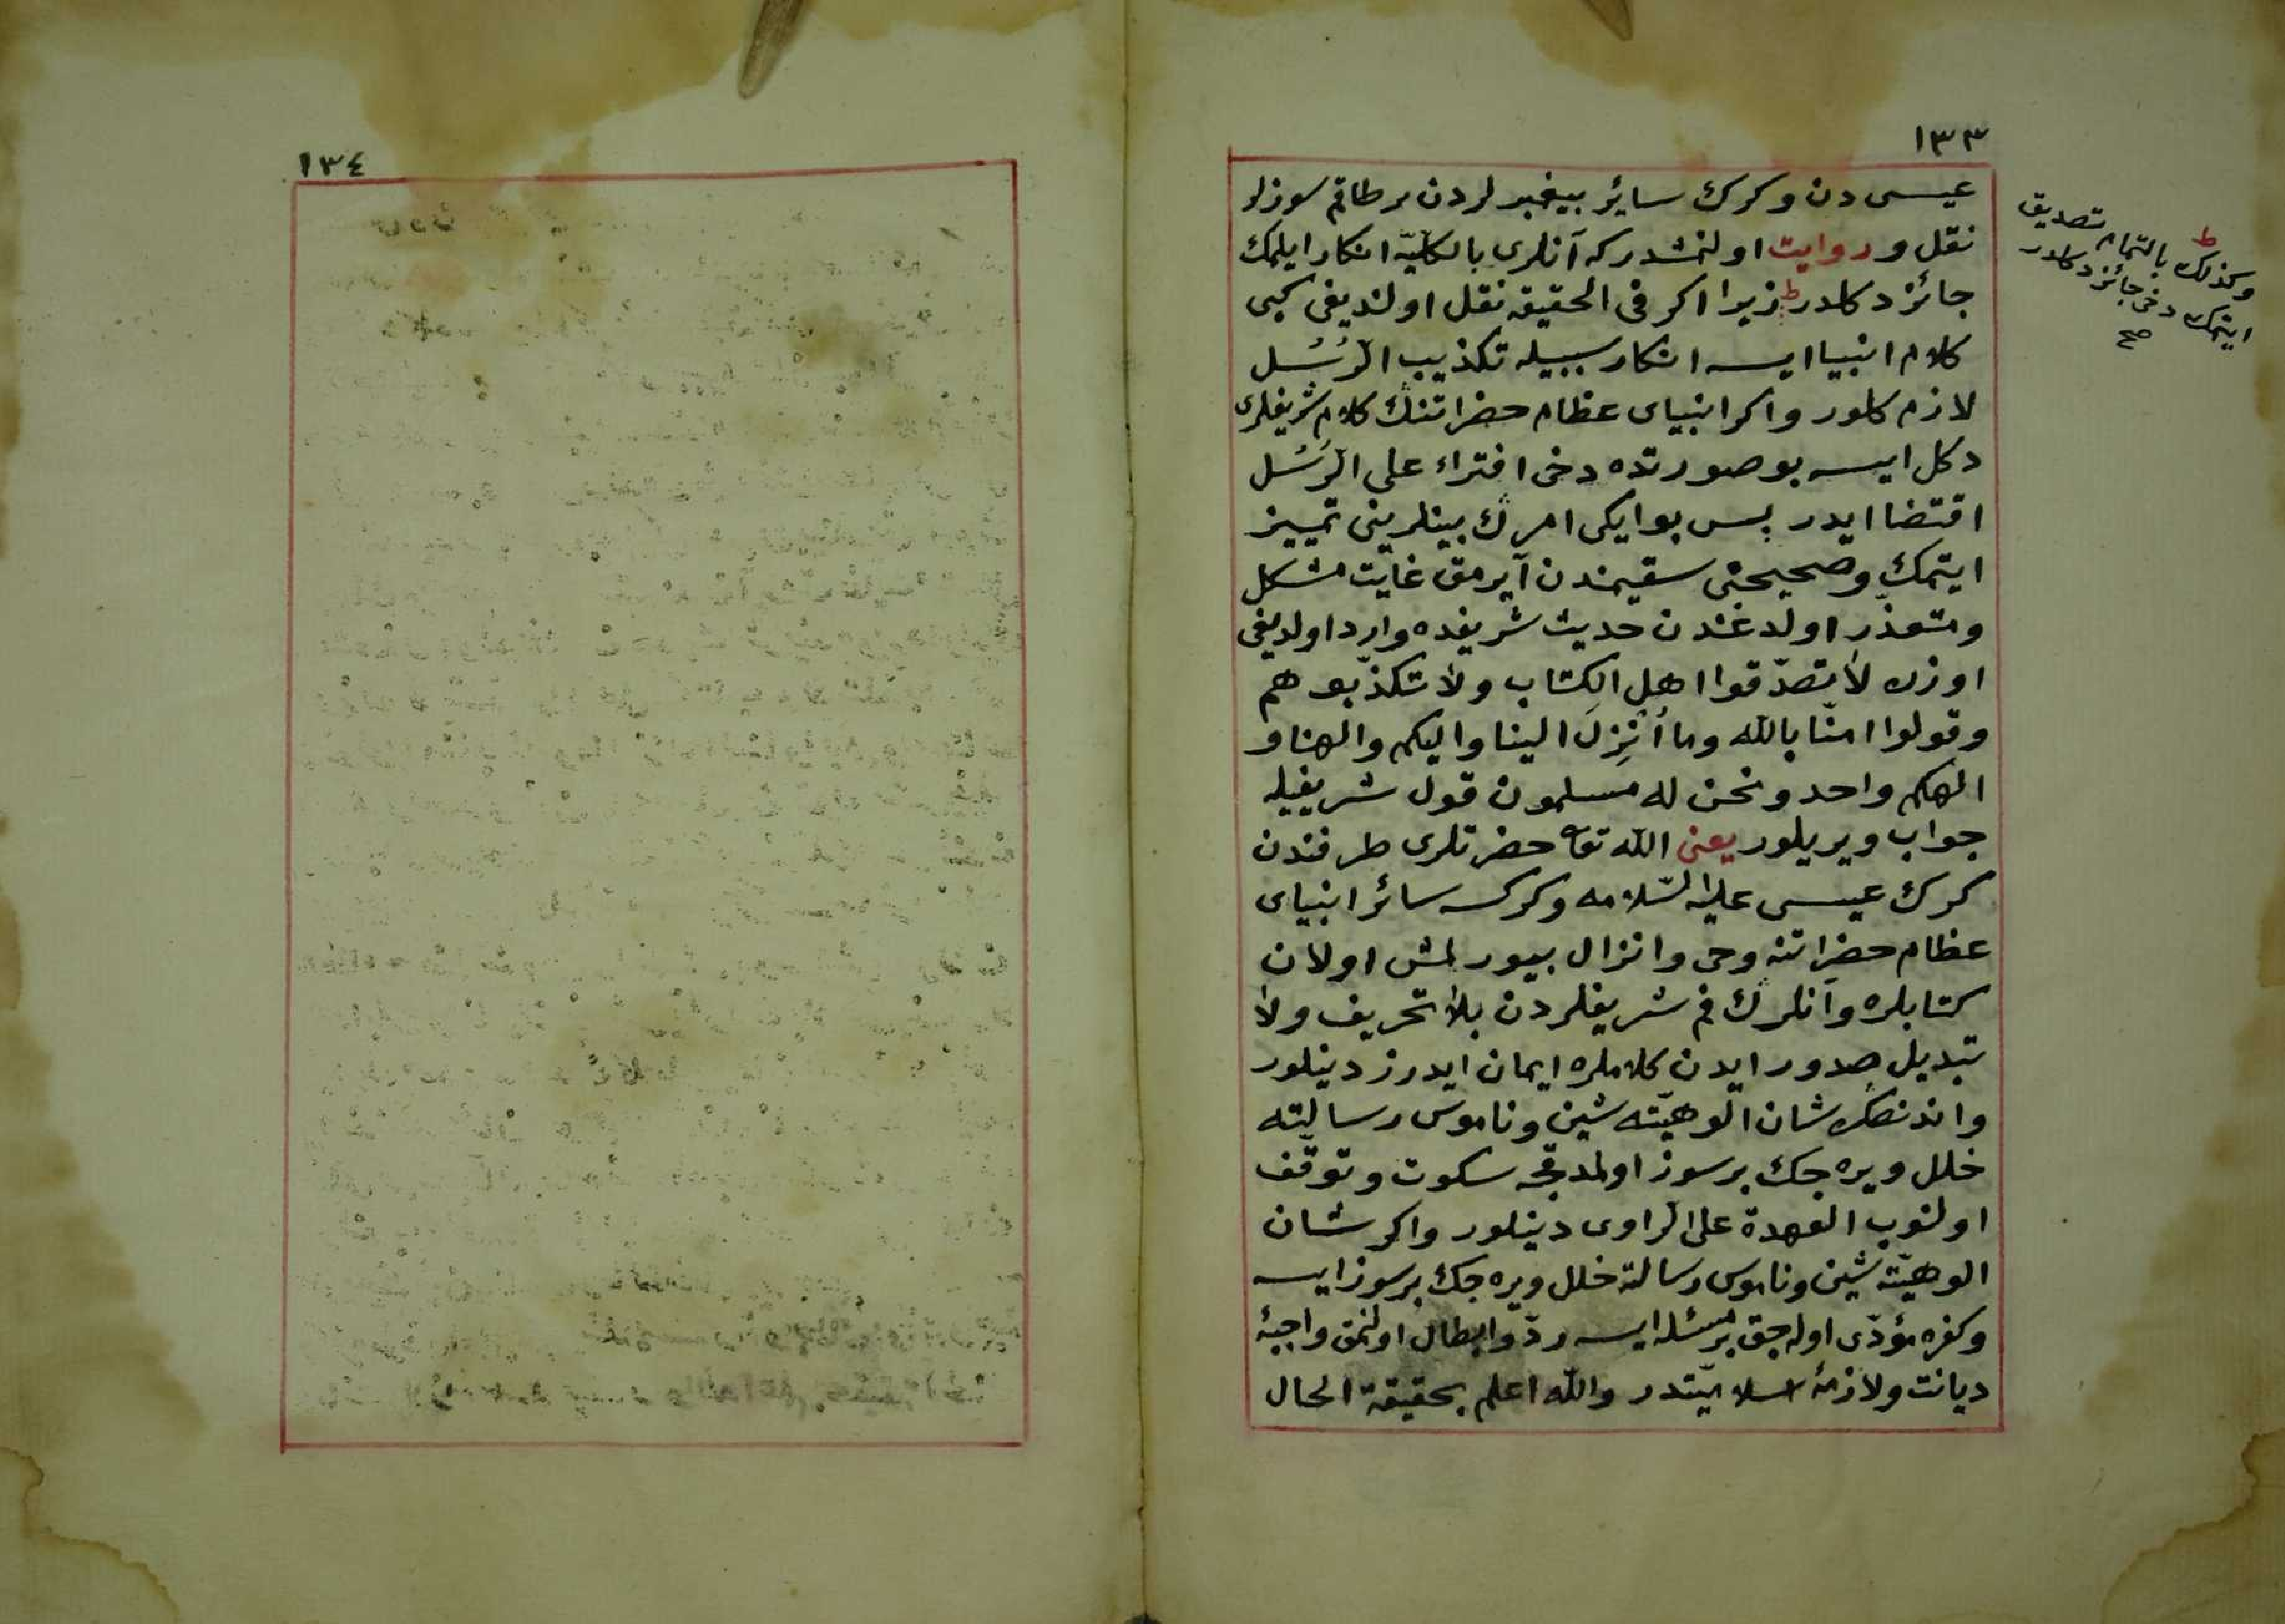 ١٣٣
عيسى دن وكرك سائر بيغمبرلردن بر طاقم سوزلر
نقل و روايت اولنمشدر كه آنلرى بالكليّه انكار ايلمك
جائز دكلدر ط زيرا اكر فى الحقيقه نقل اولنديغى كبى
كلام انبيا ايسه انكار سببيله تكذيب الرُّسُل
لازم كلور واكر انبياى عظام حضراتنڭ كلام شريفلرى
دكل ايسه بو صورتده دخى افتراء على الرّسُل
اقتضا ايدر پس بو ايكى امرڭ بينلرينى تمييز
ايتمك وصحيحنى سقيمندن آيرمق غايت مشكل
ومتعذّر اولدغندن حديث شريفده وارد اولديغى
اوزره لا تصدّقوا اهل الكتاب ولا تكذّبوهم
وقولوا امنّا بالله وما أُنْزِلَ الينا واليكم والهنا و
الهكم واحد ونحن له مسلمون قول شريفيله
جواب ويريلور يعنى الله تعا حضرتلرى طرفندن
كرك عيسى عليه السّلامه وكركسه سائر انبياى
عظام حضراتنه وحى وانزال بيورلمش اولان
كتابلره وآنلرڭ فم شريفلردن بلا تحريف ولا
تبديل صدور ايدن كلاملره ايمان ايدرز دينلور
واندنصكره شان الوهيّته شين وناموس رسالته
خلل ويره جك بر سوز اولمدقجه سكوت وتوقّف
اولنوب العهدة على الراوى دينلور واكر شان
الوهيّته شين وناموس رسالته خلل ويره جك بر سوز ايسه
وكفره مؤدّى اوله جق بر مسئله ايسه ردّ وابطال اولنمق واجبهٔ
ديانت ولازمهٔ اسلاميّتدر والله اعلم بحقيقة الحال
ط
وكذلك بالتمام تصديق
ايتمك دخى جائز دكلدر
صح
١٣٤